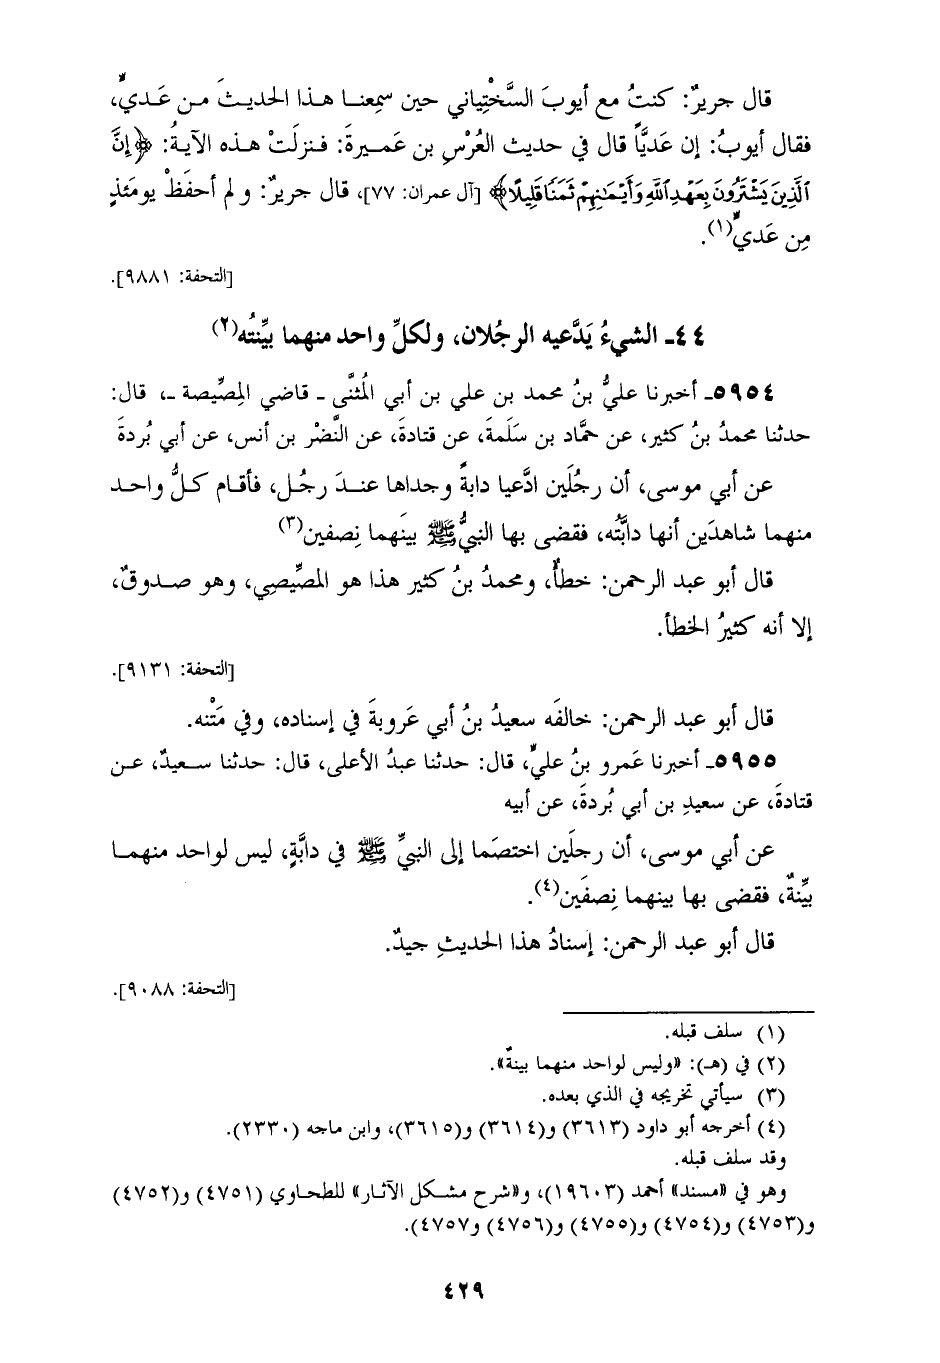 قال جريرٌ: كنتُ مع أيوبَ السَّخْتِياني حين سمِعنا هذا الحديثَ من عَديٍّ،
فقال أيوبُ: إن عَديَّاً قال في حديث العُرْسِ بن عَميرةَ: فنزلَتْ هذه الآيةُ: ﴿إِنَّ
ٱلَّذِينَ يَشْتَرُونَ بِعَهْدِ ٱللَّهِ وَأَيْمَٰنِهِمْ ثَمَنًا قَلِيلًا﴾ [آل عمران: ٧٧]، قال جريرٌ: و لم أحفَظْ يومَئذٍ
مِن عَديٍّ(١).
[التحفة: ٩٨٨١].
٤٤ـ الشيءُ يَدَّعيه الرجُلان، ولكلِّ واحد منهما بيِّنتُه(٢)
٥٩٥٤ـ أخبرنا عليُّ بنُ محمد بن علي بن أبي المُثنَّى ـ قاضي المِصِّيصة ـ، قال:
حدثنا محمدُ بنُ كثير، عن حمَّاد بن سَلَمةَ، عن قتادةَ، عن النَّضْر بن أنس، عن أبي بُردةَ
عن أبي موسى، أن رجُلَين ادَّعيا دابةً وجداها عندَ رجُل، فأقام كلُّ واحد
منهما شاهدَين أنها دابَّتُه، فقضى بها النبيُّ ﷺ بينَهما نِصفين(٣)
قال أبو عبد الرحمن: خطأٌ، ومحمدُ بنُ كثير هذا هو المصِّيصِي، وهو صدوقٌ،
إلا أنه كثيرُ الخطأ.
[التحفة: ٩١٣١].
قال أبو عبد الرحمن: خالفَه سعيدُ بنُ أبي عَروبةَ في إسناده، وفي مَتْنه.
٥٩٥٥ـ أخبرنا عَمرو بنُ عليٍّ، قال: حدثنا عبدُ الأعلى، قال: حدثنا سعيدٌ، عن
قتادةَ، عن سعيدِ بن أبي بُردةَ، عن أبيه
عن أبي موسى، أن رجلَين اختصَما إلى النبيِّ ﷺ في دابَّةٍ، ليس لواحد منهما
بيِّنةٌ، فقضى بها بينهما نِصفَين(٤).
قال أبو عبد الرحمن: إسنادُ هذا الحديثِ جيدٌ.
[التحفة: ٩٠٨٨].
(١) سلف قبله.
(٢) في (هـ): «وليس لواحد منهما بينةٌ».
(٣) سيأتي تخريجه في الذي بعده.
(٤) أخرجه أبو داود (٣٦١٣) و(٣٦١٤) و(٣٦١٥)، وابن ماجه (٢٣٣٠).
وقد سلف قبله.
وهو في «مسند» أحمد (١٩٦٠٣)، و«شرح مشكل الآثار» للطحاوي (٤٧٥١) و(٤٧٥٢)
و(٤٧٥٣) و(٤٧٥٤) و(٤٧٥٥) و(٤٧٥٦) و(٤٧٥٧).
٤٢٩